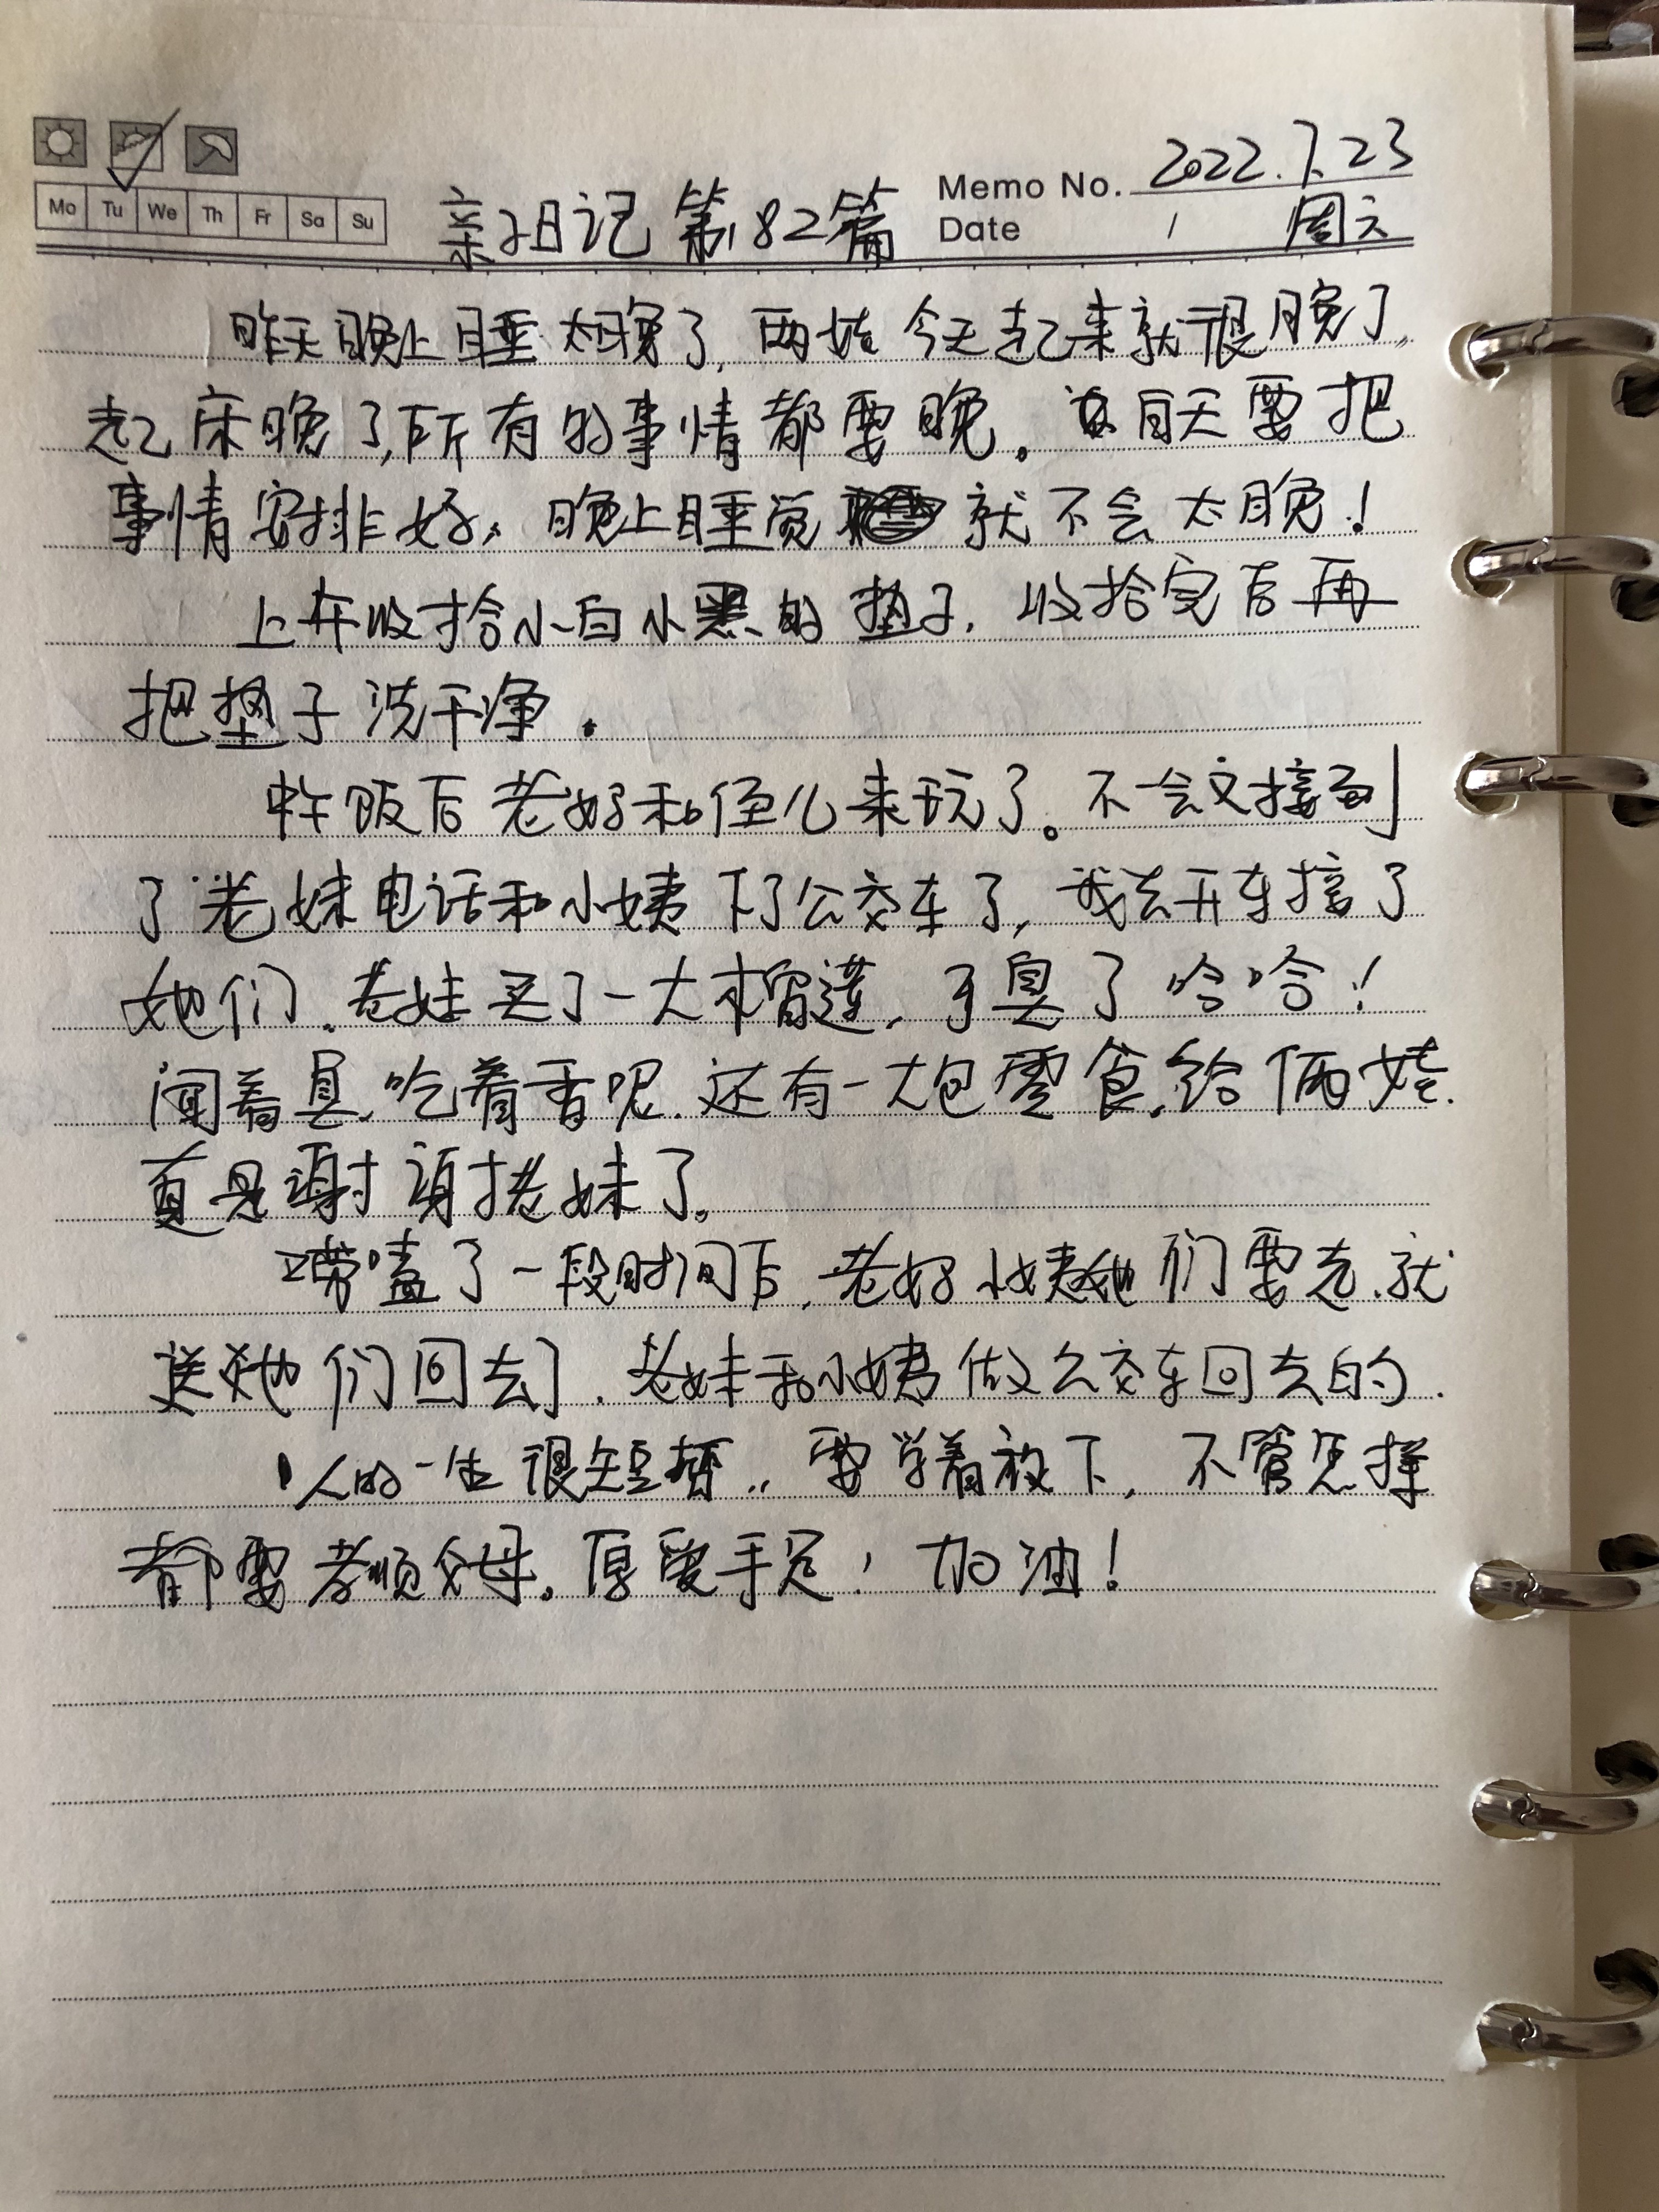 Memo No. 2022.7.23
Mo Tu We Th Fr Sa Su
亲子日记 第182篇 Date 周六
昨天晚上睡太晚了,两娃今天起来就很晚了。
起床晚了,所有的事情都要晚。每天要把
事情安排好,晚上睡觉就不会太晚!
上午收拾小白小黑的垫子,收拾完后再
把垫子洗干净.
午饭后老好和侄儿来玩了。不一会又接到
了老妹电话和小姨下了公交车了,我去开车接了
她们.老妹买了一大榴莲,可臭了哈哈!
闻着臭,吃着香呢.还有一大包零食,给俩娃.
真是谢谢老妹了。
唠嗑了一段时间后,老好小姨她们要走.就
送她们回去了.老妹和小姨做公交车回去的.
人的一生很短暂,,要学着放下,不管怎样
都要孝顺父母。厚爱手足!加油!